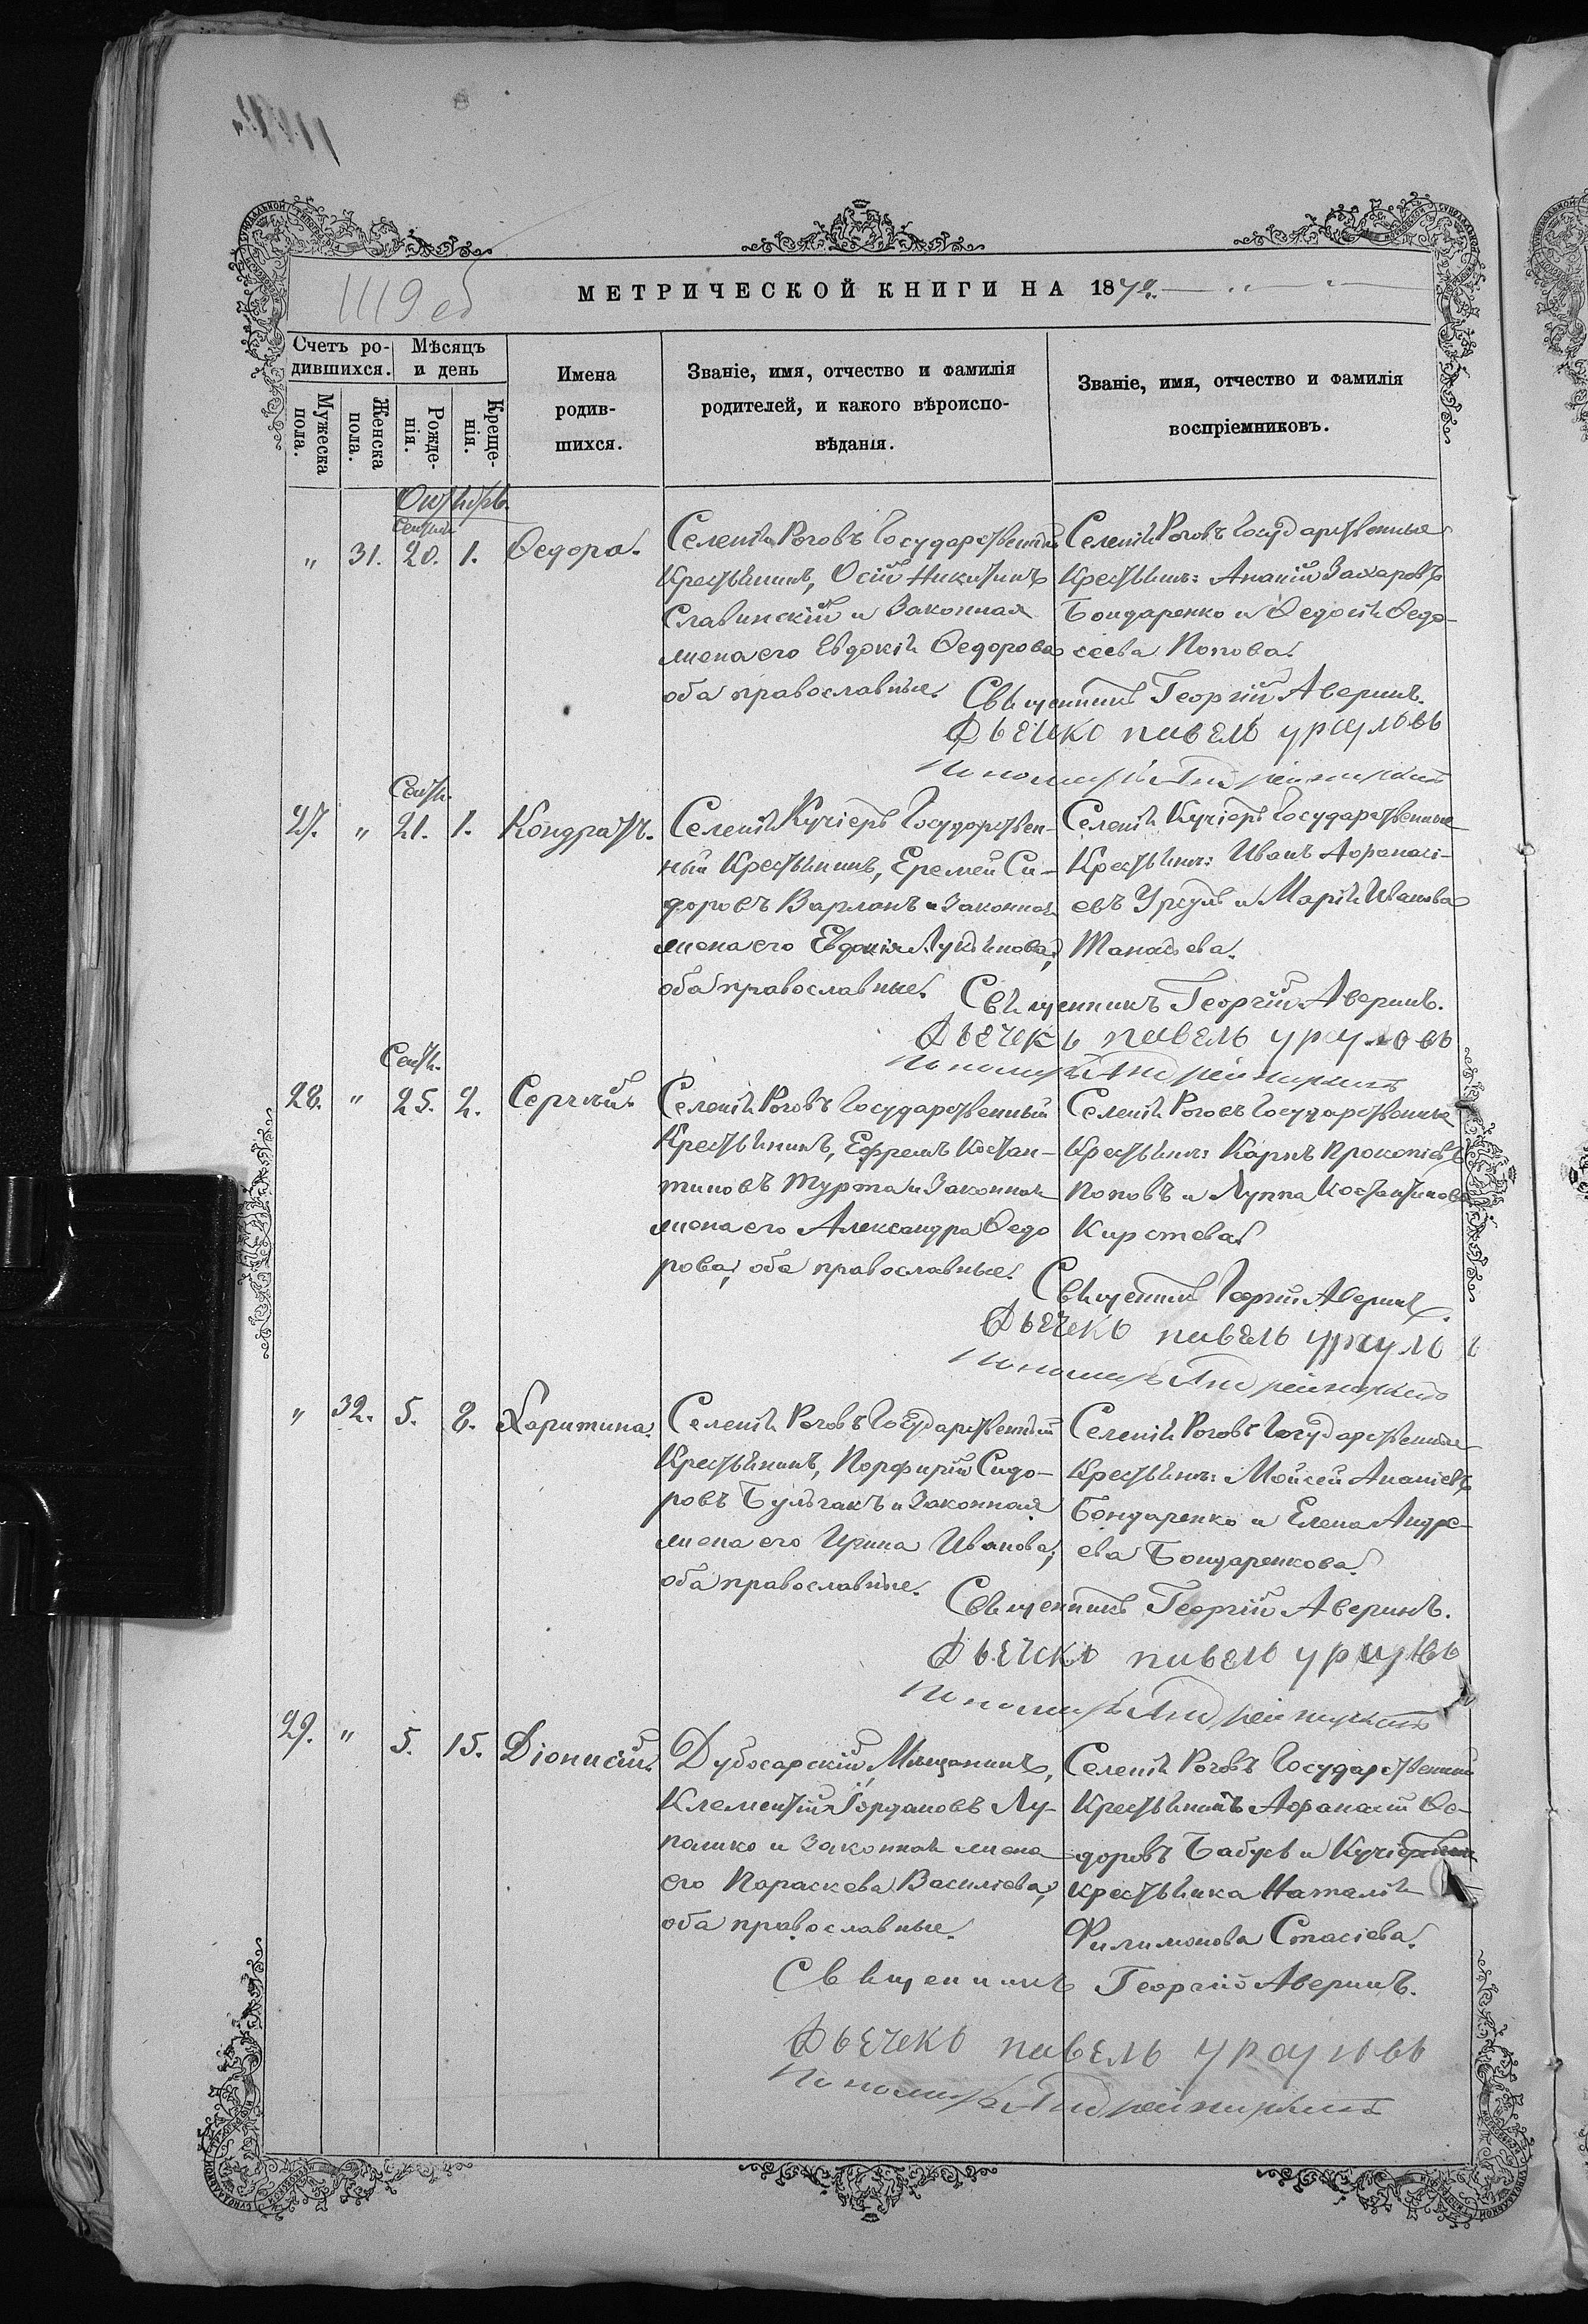 1119 об
МЕТРИЧЕСКОЙ КНИГИ НА 187
Счетъ ро-
дившихся.
Мѣсяцъ
и день
Мужеска
пола.
Женска
пола.
Рожде-
нія.
Креще-
нія.
Имена
родив-
шихся.
Званіе, имя, отчество и фамилія
родителей, и какого вѣроиспо-
вѣданія.
Званіе, имя, отчество и фамилія
воспріемниковъ.
Октябрь.
" 31. 20. 1. Ѳедора.
Селенія Роговъ Государственный
Крестьянинъ, Осій Никитинъ
Славинскій и законная
жена его Евдокія Ѳедорова
оба православные.
Селенія Роговъ Государственные
Крестьяне: Ананій Захаровъ
Бондаренко и Ѳедосія Ѳедо-
сеева Попова.
Священникъ Георгій Аверинъ.
Дьечекъ павелъ урсуловъ
Пономарь Андрей
Сент.
27. " 21. 1. Кондратъ.
Селенія Кучіеръ Государствен-
ный Крестьянинъ, Еремей Си-
доровъ Варланъ и законная
жена его Евдокія Лукьянова,
оба православные.
Селенія Кучіеръ Государственные
Крестьяне: Иванъ Афанасі-
евъ Урсулъ и Марія Иванова
Танасьева.
Священникъ Георгій Аверинъ.
Дьечекъ павелъ урсуловъ
Пономарь Андрей
Сент.
28. " 25. 2. Сергѣй.
Селенія Роговъ Государственный
Крестьянинъ, Ефремъ Костан-
тиновъ Турта и законная
жена его Александра Ѳедо
рова, оба православные.
Селенія Роговъ Государственные
Крестьяне: Карпъ Прокопіевъ
Поповъ и Луппа Костантинова
Кирстева.
Священникъ Георгій Аверинъ.
Дьечекъ павелъ урсуло
Пономарь Андрей
" 32. 5. 8. Харитина.
Селенія Роговъ Государственный
Крестьянинъ, Порфирій Сидо-
ровъ Бульгакъ и законная
жена его Ирина Иванова,
оба православные.
Селенія Роговъ Государственные
Крестьяне: Мойсей Ананіевъ
Бондаренко и Елена Андре-
ева Бондаренкова.
Священникъ Георгій Аверинъ.
Дьечекъ павелъ урсуловъ
Пономарь Андрей
29. " 5. 15. Діонисій.
Дубосарскій Мѣщанинъ,
Климентій Іордановъ Лу-
пашко и законная жена
его Параскева Василіева,
оба православные.
Селенія Роговъ Государственный
Крестьянинъ Афанасій Ѳе-
доровъ Бабуъ и
крестьянка Наталія
Филимонова Стасіева.
Священникъ Георгій Аверинъ.
Дьечекъ павелъ урсуловъ
Пономарь Андрей